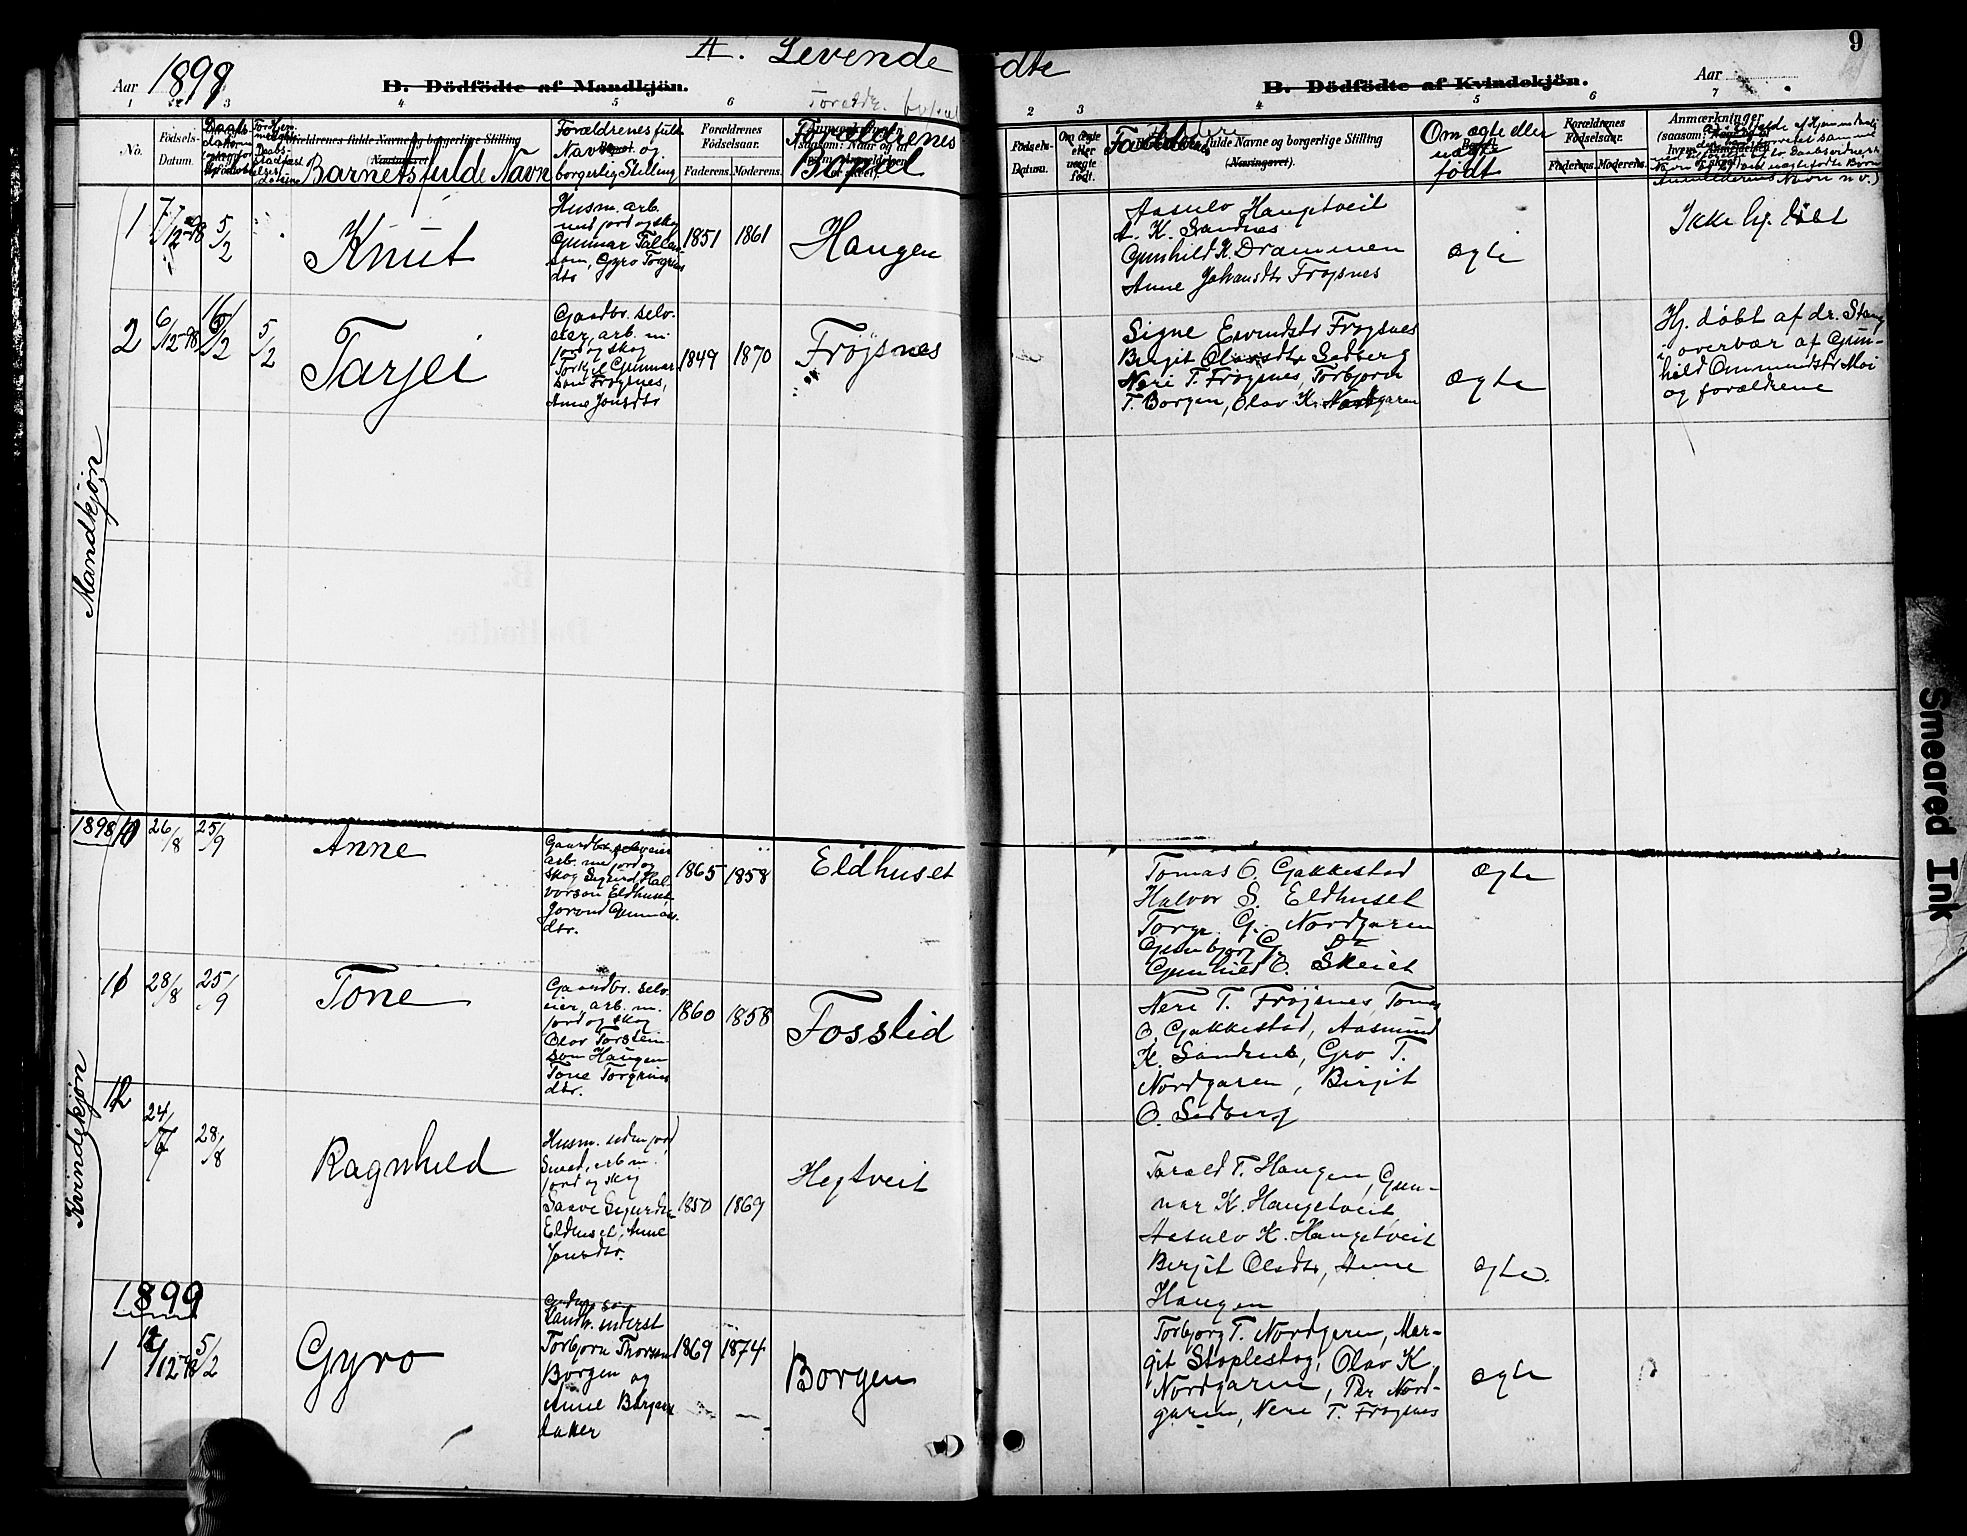 A. Levende
ødte
9
Aar 1899
B. Dödfödte af Mandkjön.
B. Dödfödte af Kvindekjön.
Aar
1 2 3 4 5 6
2 3 4 5 6 7
No.
Födsels-
Datum.
Barnets fulde Navn
Forældrenes fulde
Navn og
borgerlig Stilling
Forældrenes
Födselsaar.
Faderens. Moderens.
Forældrenes
Bopæl
Födsels-
Datum.
Om ægte
eller
uægte
födt.
fulde Navne og borgerlige Stilling
(Næringsvei).
Om ægte eller
uægte
født
Forældrenes
Födselsaar.
Faderens. Moderens.
Anmærkninger
Mandkjøn
1
5/2
Knut
Husm. arb.
med jord og skog
Gunnar Tallak-
son, Gyro Torgrims
dtr
1851 1861
Haugen
Aasulv Haugetveit
A. K. Sandnes
Gunhild K. Drammen
Anne Johansdtr Frøjsnes
ægte
Ikke hj. døbt
2
6/12 98
5/2
Tarjei
Gaardbr. selv-
eier, arb. m.
jord og skog
Torkjel Gunnar
son Frøjsnes,
Anne Jonsdtr
1849 1870
Frøjsnes
Signe Eivindsdtr Frøjsnes
Birgit Olavsdtr Sedberg
Neri T. Frøjsnes, Torbjørn
T. Borgen, Olav K. Nordgaren
Ægte
Hj. døbt af dr. Stang
i overvær af Gun-
hild Ommundsdtr Moi
og forældrene
Kvindekjøn
1898 10
26/8
25/9
Anne
Gaardbr. selveier
arb. med jord og
skog Sigurd Hal-
vorson Eldhuset
Jorond Gunnars
dtr.
1865 1858
Eldhuset
Tomas O. Gjakkestad
Halvor S. Eldhuset
Torgr. G. Nordgaren
Gunbjørg G. Do
Gunhild O. Skeiet
Ægte
11
28/8
25/9
Tone
Gaardbr. selv-
eier, arb. m.
jord og skog
Olav Torstein-
son Haugen
Tone Torgrims
dtr.
1860 1858
Fosslid
Neri T. Frøjsnes, Tomas
O. Gjakkestad, Aasmund
K. Sandnes, Gro T.
Nordgaren, Birgit
O. Sedberg
12
24/7
28/8
Ragnhild
Husm. uden jord
Smed, arb m.
jord og skog
Saave Sigurdsen
Eldhuset, Anne
Jonsdtr.
1850 1869
Hegtveit
Tarald T. Haugen, Gun-
nar K. Haugetveit
Aasulv K. Haugetveit
Birgit Olsdtr, Anne
Haugen
Ægte.
1899
1
5/2
Gyro
Landh. inderst
Torbjørn Thorson
Borgen og
Anne Birgers
datter
1869 1874
Borgen
Torbjørg T. Nordgaren, Mar-
git Staplestog, Olav K.
Nordgaren, Per Nord-
garen, Neri T. Frøjsnes
ægte
Smeared Ink